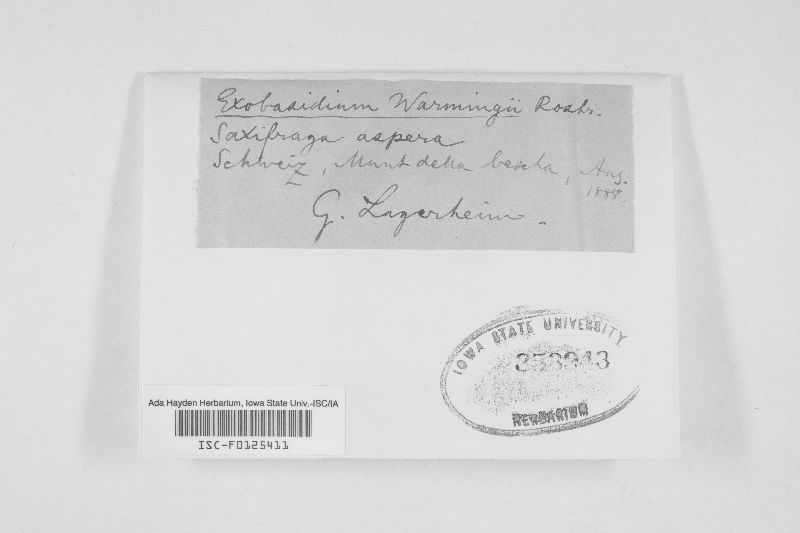 Exobasidium Warmingii Rostr.
Saxifraga aspera
Schweiz, Munt della bescha, Aug.
1888.
G. Lagerheim.
IOWA STATE UNIVERSITY
353943
HERBARIUM
Ada Hayden Herbarium, Iowa State Univ.-ISC/IA
ISC-F0125411